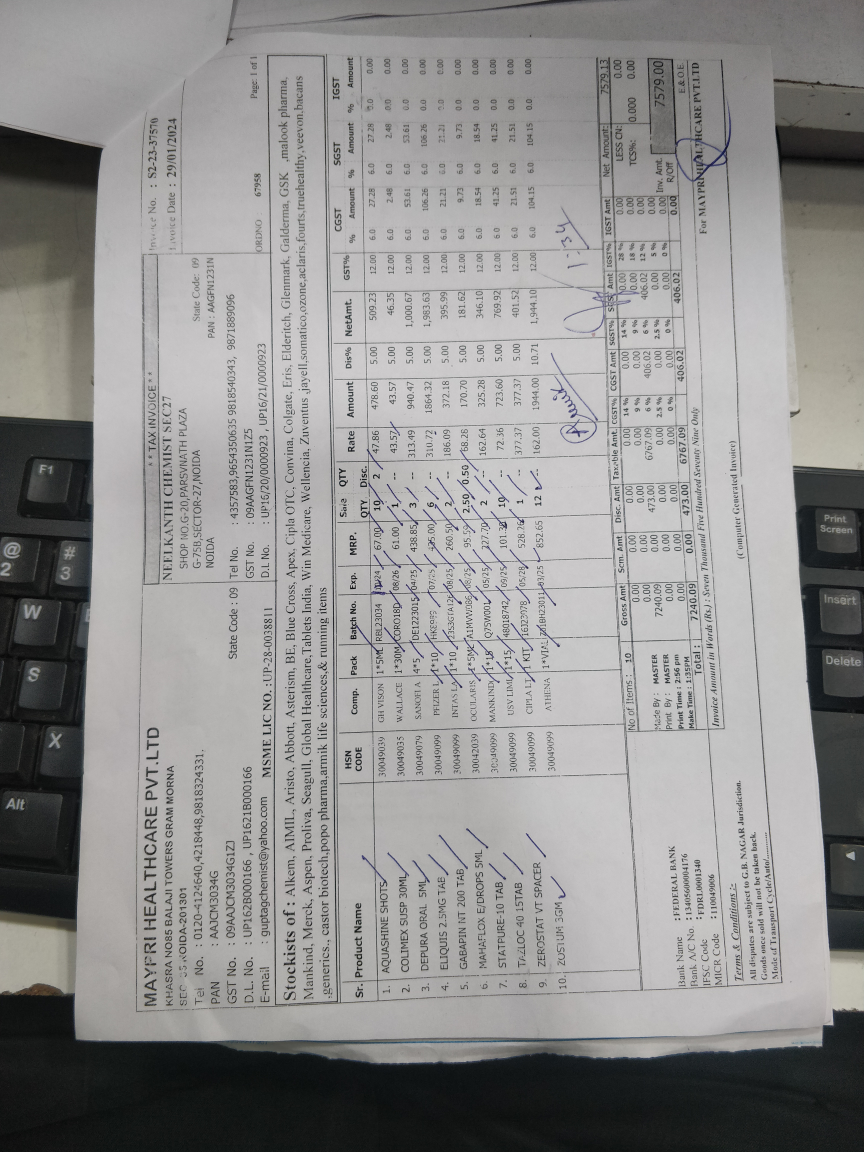 MAYPRI HEALTHCARE PVT.LTD
KHASRA NO85 BALAJI TOWERS GRAM MORNA
SEC-35,NOIDA-201301
Tel No. : 0120-4124640,4218448,9818324331,
PAN : AAJCM3034G
GST No. : 09AAJCM3034G1ZJ State Code : 09
D.L. No. : UP162B000166 , UP1621B000166
E-mail : guptagchemist@yahoo.com MSME LIC NO. :UP-28-0038811
* * TAX INVOICE * *
NEELKANTH CHEMIST SEC27
SHOP NO.G-20,PARSVNATH PLAZA
G-75B,SECTOR-27,NOIDA
NOIDA State Code: 09
PAN : AAGFN1231N
Tel No. : 4357583,9654350635 9818540343, 9871889096
GST No. : 09AAGFN1231N1Z5
D.L No. : UP16/20/0000923 , UP16/21/0000923
Invoice No. : S2-23-37570
Invoice Date : 29/01/2024
ORDNO 67958 Page: 1 of 1
Stockists of : Alkem, AIMIL, Aristo, Abbott, Asterism, BE, Blue Cross, Apex, Cipla OTC, Convina, Colgate, Eris, Elderitch, Glenmark, Galderma, GSK ,malook pharma,
Mankind, Merck, Aspen, Proliva, Seagull, Global Healthcare,Tablets India, Win Medicare, Wellencia, Zuventus ,jayell,somatico,ozone,aclaris,fourts,truehealthy,veevon,bacans
,generics., castor biotech,popo pharma,armik life sciences,& running items
Sr. Product Name HSN CODE Comp. Pack Batch No. Exp. MRP. Sale QTY QTY Disc. Rate Amount Dis% NetAmt. GST% CGST % Amount SGST % Amount IGST % Amount
1. AQUASHINE SHOTS 30049039 GH VISON 1*5ML RBL23034 67.00 10 2 47.86 478.60 5.00 509.23 12.00 6.0 27.28 6.0 27.28 0.0 0.00
2. COLIMEX SUSP 30ML 30049035 WALLACE 1*30M 08/26 61.00 1 -- 43.57 43.57 5.00 46.35 12.00 6.0 2.48 6.0 2.48 0.0 0.00
3. DEPURA ORAL 5ML 30049079 SANOFI A 4*5 DE1223015 04/25 438.85 3 -- 313.49 940.47 5.00 1,000.67 12.00 6.0 53.61 6.0 53.61 0.0 0.00
4. ELIQUIS 2.5MG TAB 30049099 PFIZER L 1*10 07/25 6 -- 310.72 1864.32 5.00 1,983.63 12.00 6.0 106.26 6.0 106.26 0.0 0.00
5. GABAPIN NT 200 TAB 30049099 INTAS LA 1*10 08/25 260.50 2 -- 186.09 372.18 5.00 395.99 12.00 6.0 21.21 6.0 21.21 0.0 0.00
6. MAHAFLOX E/DROPS 5ML 30042039 OCULARIS 1*5ML 08/25 2.50 0.50 68.28 170.70 5.00 181.62 12.00 6.0 9.73 6.0 9.73 0.0 0.00
7. STATPURE-10 TAB 30049099 MANKIND 1*15 Q75W001 05/25 227.70 2 -- 162.64 325.28 5.00 346.10 12.00 6.0 18.54 6.0 18.54 0.0 0.00
8. TAZLOC 40 15TAB 30049099 USV LIMI 1*15 48018742 09/25 10 -- 72.36 723.60 5.00 769.92 12.00 6.0 41.25 6.0 41.25 0.0 0.00
9. ZEROSTAT VT SPACER 30049099 CIPLA LT 1 KIT 05/28 1 -- 377.37 377.37 5.00 401.52 12.00 6.0 21.51 6.0 21.51 0.0 0.00
10. ZOSTUM 3GM 30049099 ATHENA 1*VIAL 03/25 852.65 12 -- 162.00 1944.00 10.71 1,944.10 12.00 6.0 104.15 6.0 104.15 0.0 0.00
1:34
Bank Name : FEDERAL BANK
Bank A/C No. :13405600004176
IFSC Code : FDRL0001340
MICR Code : 110049006
No of Items : 10
Made By : MASTER
Print By : MASTER
Print Time : 2:56 pm
Make Time : 1:35PM
Gross Amt Scm. Amt Disc. Amt Taxable Amt. CGST% CGST Amt SGST% SGST Amt IGST% IGST Amt
0.00 0.00 0.00 0.00 14 % 0.00 14 % 0.00 28 % 0.00
0.00 0.00 0.00 0.00 9 % 0.00 9 % 0.00 18 % 0.00
7240.09 0.00 473.00 6767.09 6 % 406.02 6 % 406.02 12 % 0.00
0.00 0.00 0.00 0.00 2.5 % 0.00 2.5 % 0.00 5 % 0.00
0.00 0.00 0.00 0.00 0 % 0.00 0 % 0.00 0 % 0.00
Total : 7240.09 0.00 473.00 6767.09 406.02 406.02 0.00
Net Amount: 7579.13
LESS CN: 0.00
TCS%: 0.000 0.00
Inv. Amt. R/Off 7579.00
Invoice Amount in Words (Rs.) : Seven Thousand Five Hundred Seventy Nine Only
E.& O.E.
Terms & Conditions :-
All disputes are subject to G.B. NAGAR Jurisdiction.
Goods once sold will not be taken back.
Mode of Transport Cycle/Auto/...........
(Computer Generated Invoice)
For MAYPRI HEALTHCARE PVT.LTD
F1
@
2
#
3
W
S
X
Alt
Print
Screen
Insert
Delete